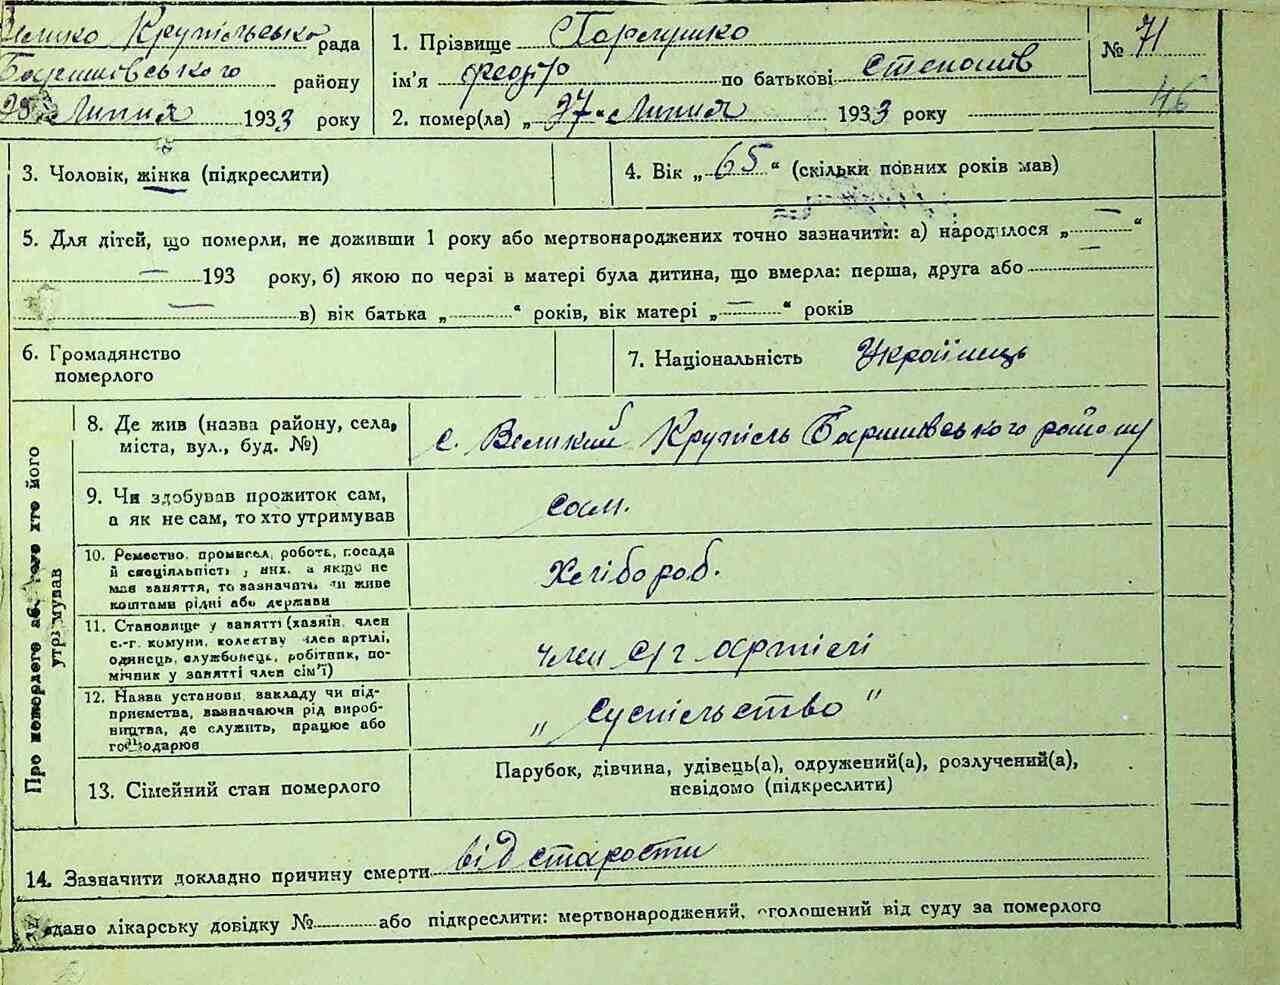 Велико Крупільська рада
Баришівського району
28 Липня 1933 року
1. Прізвище
ім'я Федір по батькові Степанів
2. помер(ла) „27“ Липня 1933 року
№ 71
46
3. Чоловік, жінка (підкреслити)
4. Вік „65“ (скільки повних років мав)
5. Для дітей, що померли, не доживши 1 року або мертвонароджених точно зазначити: а) народилося „—“
— 193 року, б) якою по черзі в матері була дитина, що вмерла: перша, друга або —
— в) вік батька „ “ років, вік матері „—“ років
6. Громадянство
померлого
7. Національність Українець
Про померлого або того хто його
утримував
8. Де жив (назва району, села,
міста, вул., буд. №)
с. Великий Крупіль Баришівського району
9. Чи здобував прожиток сам,
а як не сам, то хто утримував
сам.
10. Ремество, промисел, робота, посада
й спеціяльність у них, а якщо не
мав заняття, то зазначать чи живе
коштами рідні або держави
Хлібороб.
11. Становище у занятті (хазяїн, член
с.-г. комуни, колективу член артілі,
одинець, службовець, робітник, по-
мічник у занятті член сім'ї)
член с/г артілі
12. Назва установи, закладу чи під-
приємства, зазначаючи рід вироб-
ництва, де служить, працює або
господарює
„Суспільство“
13. Сімейний стан померлого
Парубок, дівчина, удівець(а), одружений(а), розлучений(а),
невідомо (підкреслити)
14. Зазначити докладно причину смерти від старости
дано лікарську довідку № або підкреслити: мертвонароджений, оголошений від суду за померлого